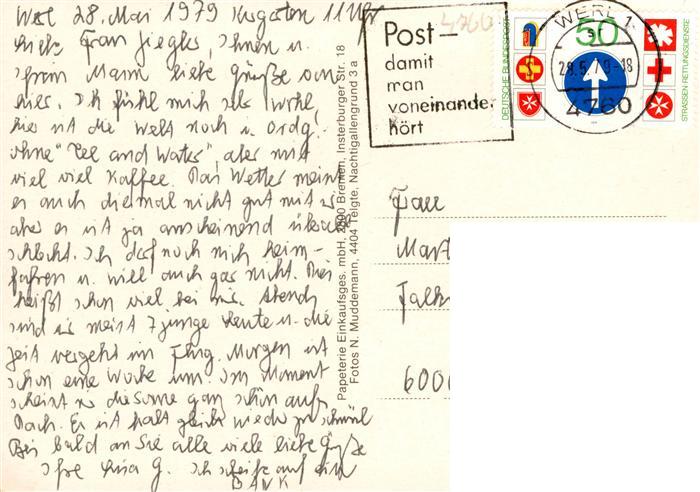 Werl 28. Mai 1979 Kurgarten 11 Uhr
Liebe Frau Ziegler, Ihnen u.
Ihrem Mann liebe Grüße von
hier. Ich fühl mich sehr wohl
hier ist die Welt noch in Ordg!
ohne "Tee and Water", aber mit
viel viel Kaffee. Das Wetter meint
es auch diesmal nicht gut mit mir
aber es ist ja anscheinend überall
schlecht. Ich darf noch nicht heim-
fahren u. will auch gar nicht. Das
heißt schon viel bei mir. Abends
sind wir meist 7 junge Leute u. die
Zeit vergeht im Flug. Morgen ist
schon eine Woche um. Im Moment
scheint die Sonne ganz schön aufs
Dach. Es ist halt gleich wieder zu schwül
Bis bald an Sie alle viele liebe Grüße
Ihre G. Ich auf
BANK
Papeterie Einkaufsges. mbH, 2800 Bremen, Insterburger Str. 18
Fotos N. Muddemann, 4404 Telgte, Nachtigallengrund 3 a
4760
Post—
damit
man
voneinander
hört
WERL 1
4760
DEUTSCHE BUNDESPOST
50
STRASSEN RETTUNGSDIENSTE
Frau
Mart
Falk
6000